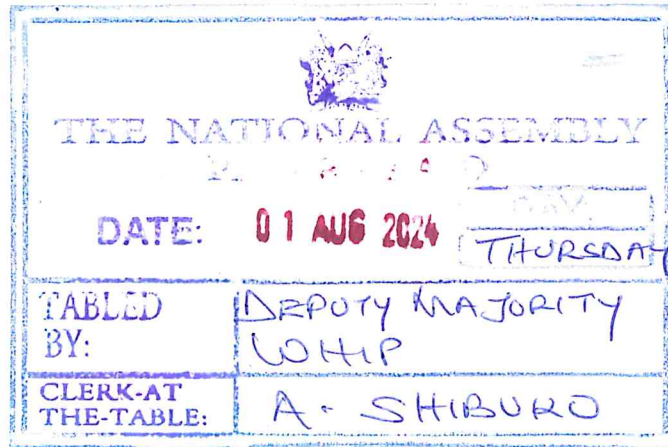 THE NATIONAL ASSEMBLY
DATE: 01 AUG 2024 DAY.
THURSDAY
TABLED BY: DEPUTY MAJORITY WHIP
CLERK-AT THE-TABLE: A. SHIBUKO